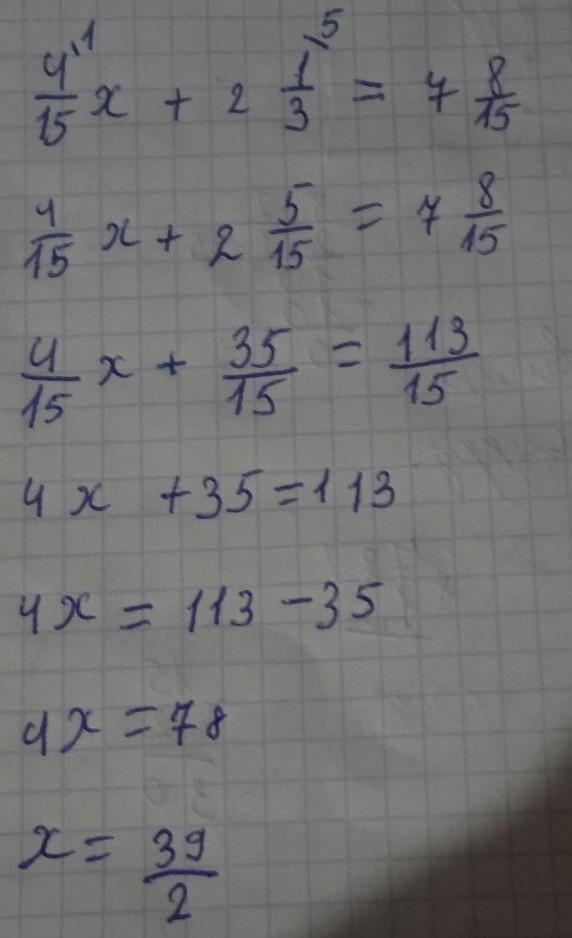 4/15 \1 x + 2 1/3 \5 = 7 8/15
4/15 x + 2 5/15 = 7 8/15
4/15 x + 35/15 = 113/15
4x + 35 = 113
4x = 113 - 35
4x = 78
x = 39/2